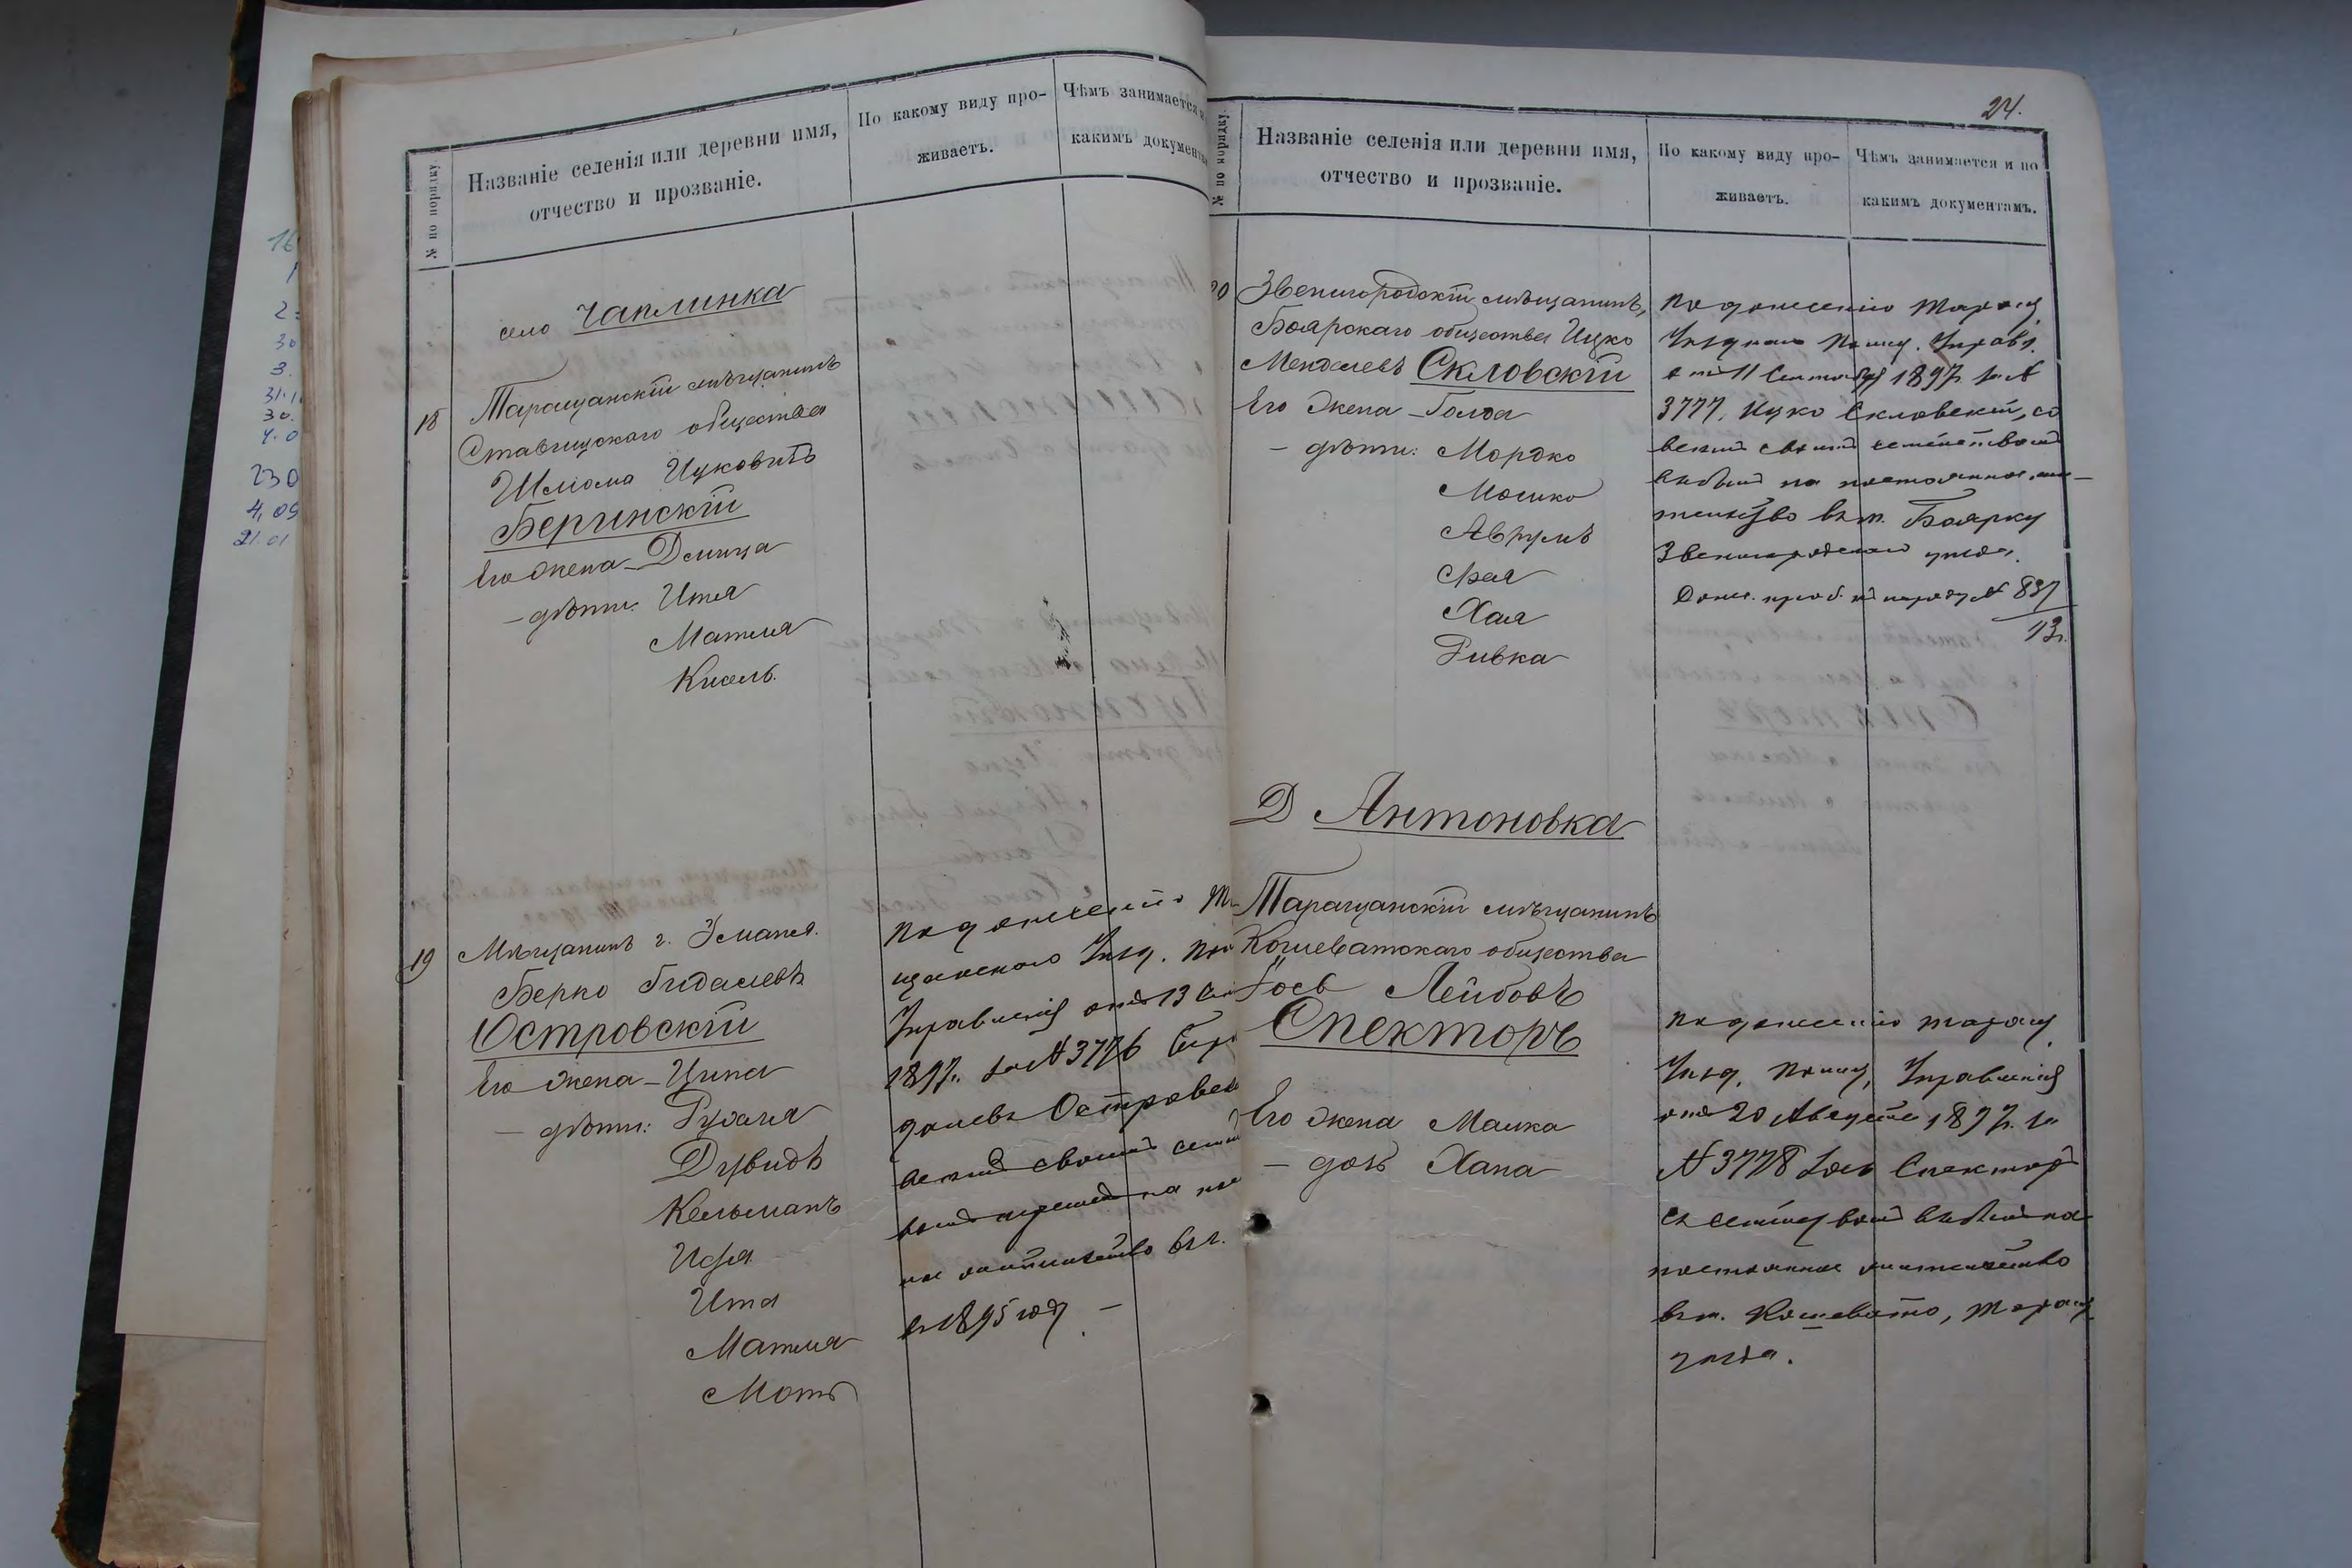 № по порядку.
Названіе селенія или деревни имя,
отчество и прозваніе.
По какому виду про-
живаетъ.
Чѣмъ занимается и
какимъ документа
село Чаплинка
18
Таращанскій мѣщанинъ
Ставищскаго общества
Шліома Ицковичъ
Беринскій
Его жена - Демица
- дѣти: Итя
Матля
Кисель.
19
Мѣщанинъ г. Умань.
Берко Гидалевъ
Островскій
Его жена - Ципа
- дѣти: Рухля
Дувидъ
Кельманъ
Ита
Матля
Мотя
По донесенію
щанскаго Уѣзд.
Управленія отъ 13
1897 г. за № 3776
далевъ Островск
всемъ своимъ
на
жительство въ г.
въ 1895 году -
24.
№ по порядку.
Названіе селенія или деревни имя,
отчество и прозваніе.
По какому виду про-
живаетъ.
Чѣмъ занимается и по
какимъ документамъ.
20
Звенигородскій мѣщанинъ,
Боярскаго общества Ицко
Менделевъ Скловскій
Его жена - Голда
- дѣти: Мордко
Мошко
Аврумъ
Сося
Хая
Ривка
По донесенію Таращ.
Уѣзднаго Полиц. Управл.
отъ 11 Сентября 1897 г. за №
3777, Ицко Скловскій, со
всемъ своимъ семействомъ
выбылъ на постоянное жи-
тельство въ м. Боярку
Звенигородскаго уѣзда.
№ 837
13 г.
Д Антоновка
Таращанскій мѣщанинъ
Кошеватскаго общества
Іось Лейбовъ
Спекторъ
Его жена Малка
- дочь Хана
По донесенію Таращ.
Уѣзд. Полиц. Управленія
отъ 20 Августа 1897 г. за
№ 3778 Іось Спекторъ
съ семействомъ выбылъ на
постоянное жительство
въ м. Кошевато, Таращ.
уѣзда.